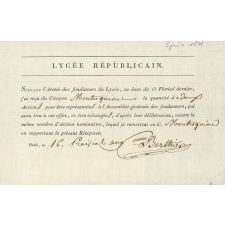 LYCÉE RÉPUBLICAIN.
SUIVANT l'Arrêté des fondateurs du Lycée, en date du 18 Floréal dernier,
j'ai reçu du Citoyen Montesquiou la quantité de deux
Actions pour être représentées à l'Assemblée générale des fondateurs, qui
aura lieu à cet effet, et être échangées, d'après leur délibération, contre le
même nombre d'Action nominative, lequel je remettrai au C. Montesquiou
en rapportant le présent Récépissé.
Paris, ce 16. Prairial an
Berthier